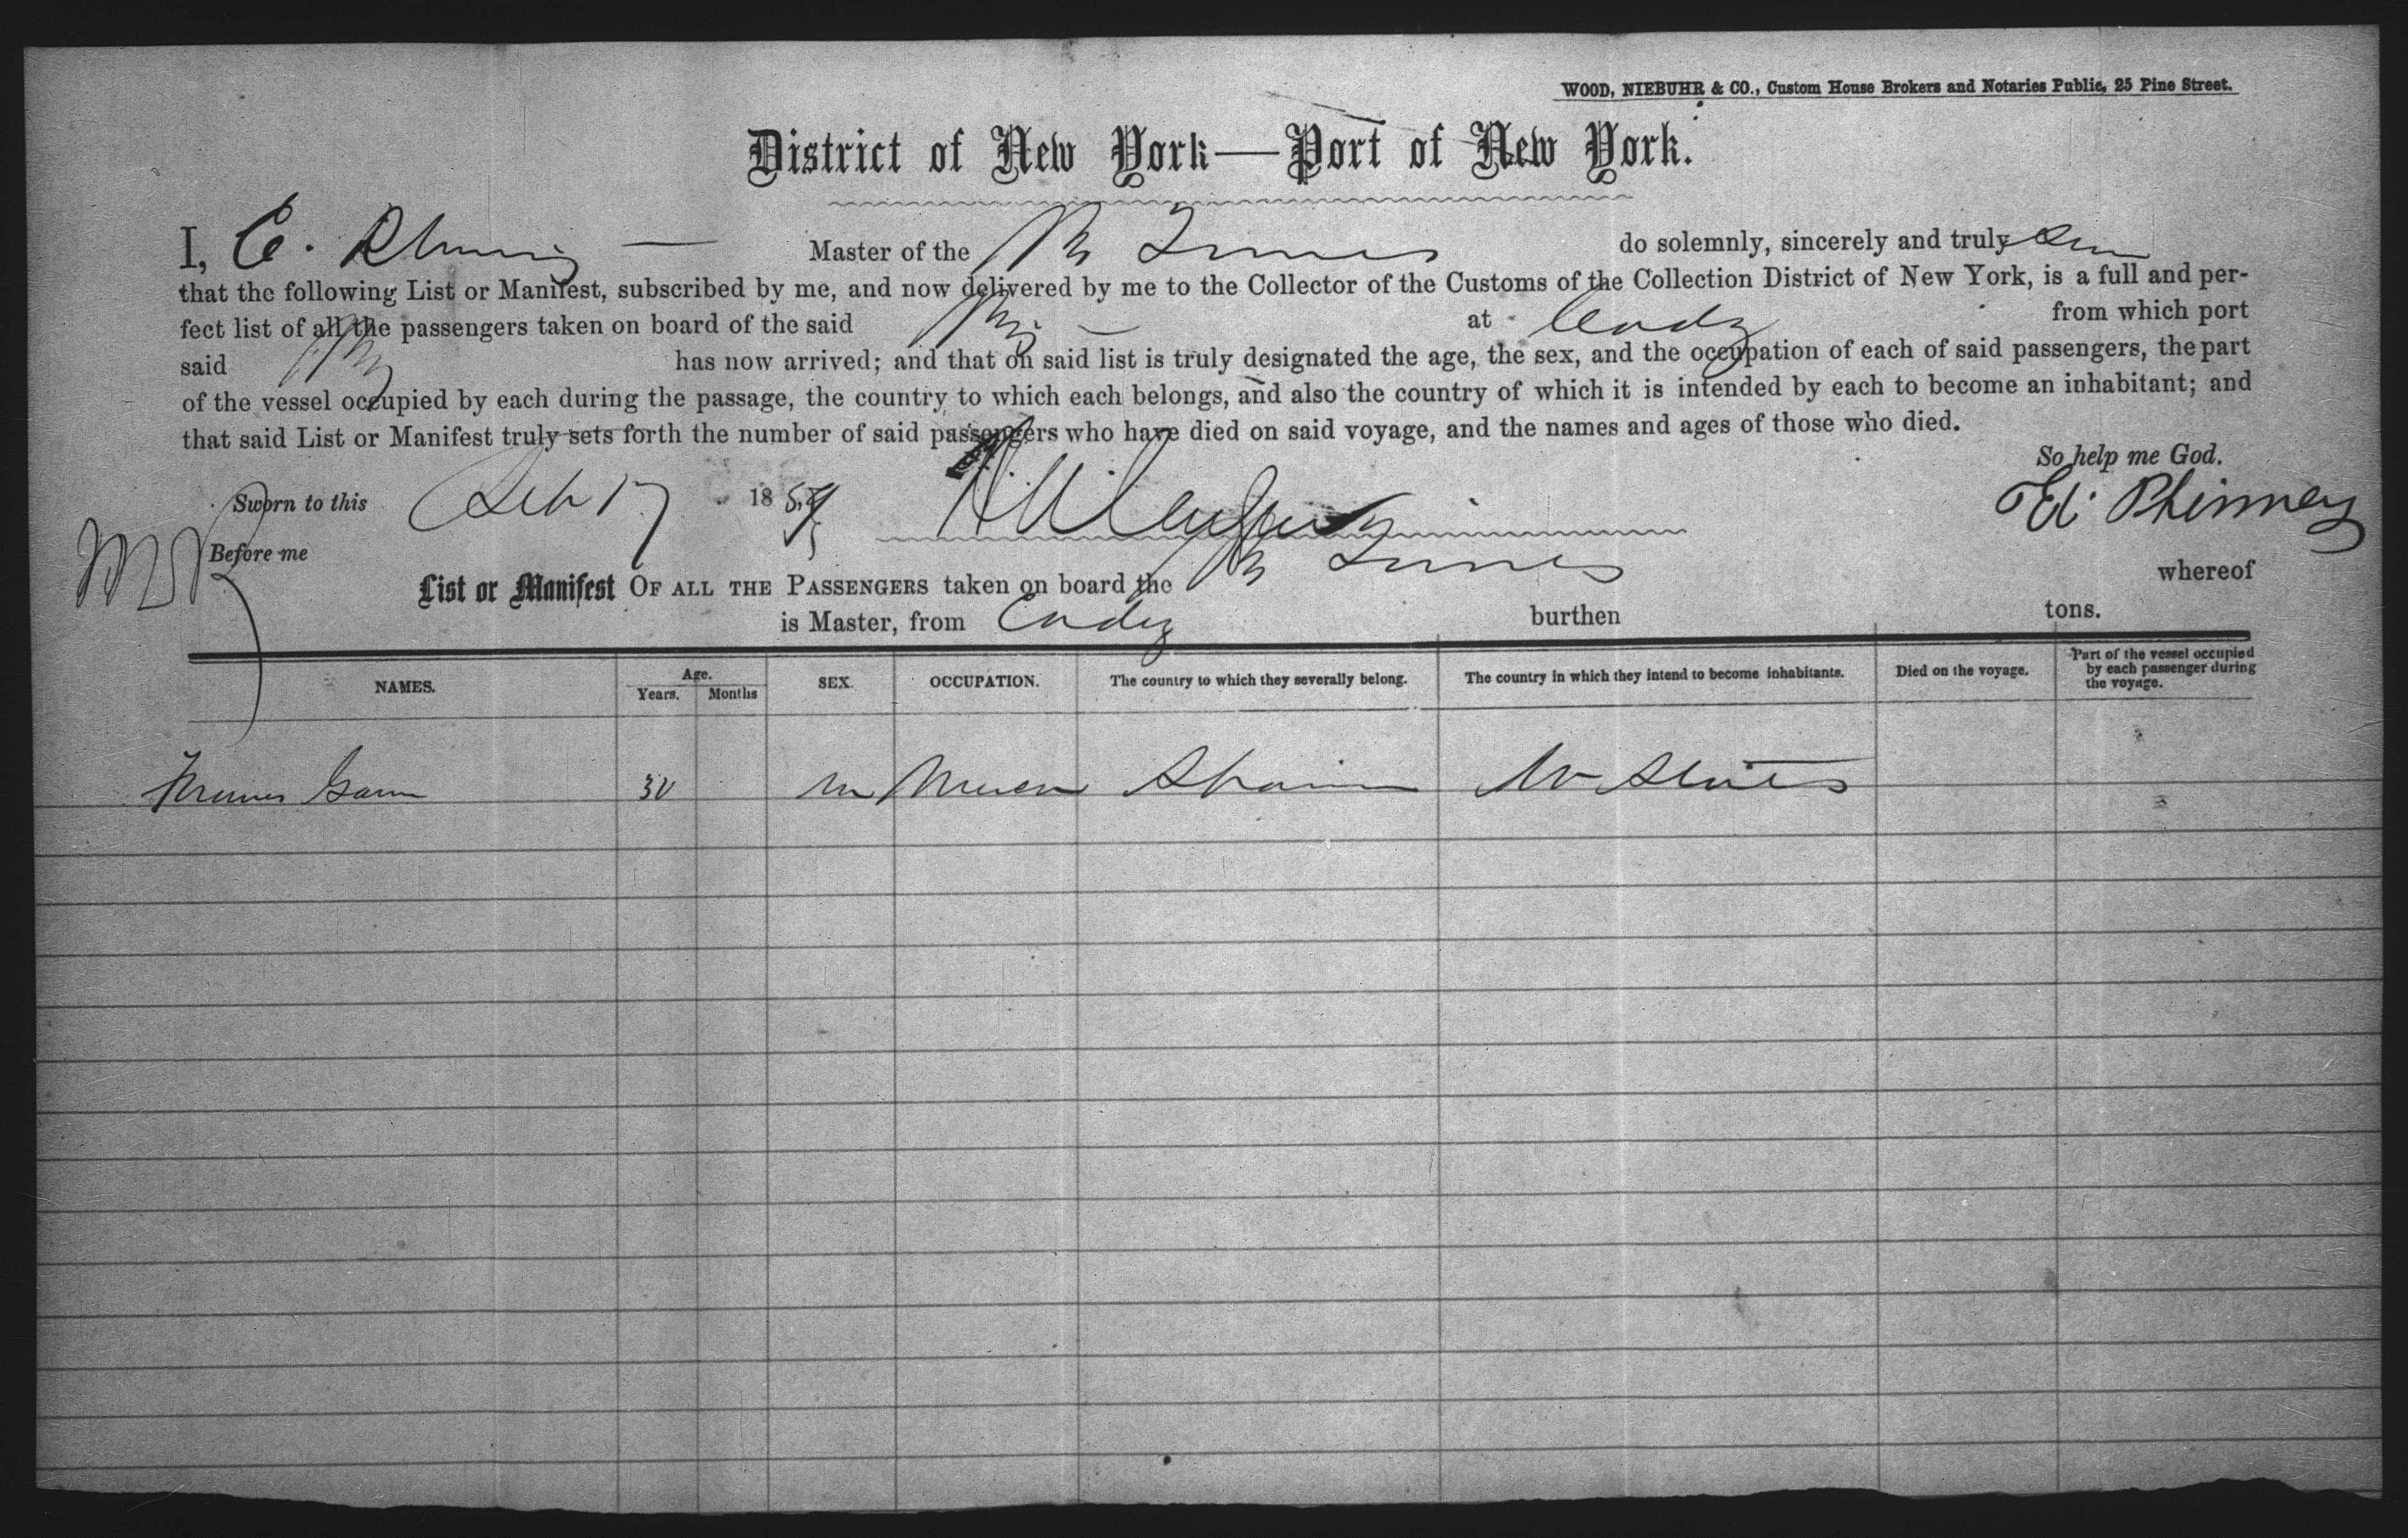 WOOD, NIEBUHR & CO., Custom House Brokers and Notaries Public, 25 Pine Street.
District of New York—Port of New York.
I, E. Phinney Master of the do solemnly, sincerely and truly
that the following List or Manifest, subscribed by me, and now delivered by me to the Collector of the Customs of the Collection District of New York, is a full and per-
fect list of all the passengers taken on board of the said at Cadiz from which port
said has now arrived; and that on said list is truly designated the age, the sex, and the occupation of each of said passengers, the part
of the vessel occupied by each during the passage, the country to which each belongs, and also the country of which it is intended by each to become an inhabitant; and
that said List or Manifest truly sets forth the number of said passengers who have died on said voyage, and the names and ages of those who died.
So help me God.
Sworn to this Feb 17 18
Phinney
Before me
List or Manifest OF ALL THE PASSENGERS taken on board the whereof
is Master, from Cadiz burthen tons.
NAMES. Age. Years. Months SEX. OCCUPATION. The country to which they severally belong. The country in which they intend to become inhabitants. Died on the voyage. Part of the vessel occupied by each passenger during the voyage.
30 m Spain States